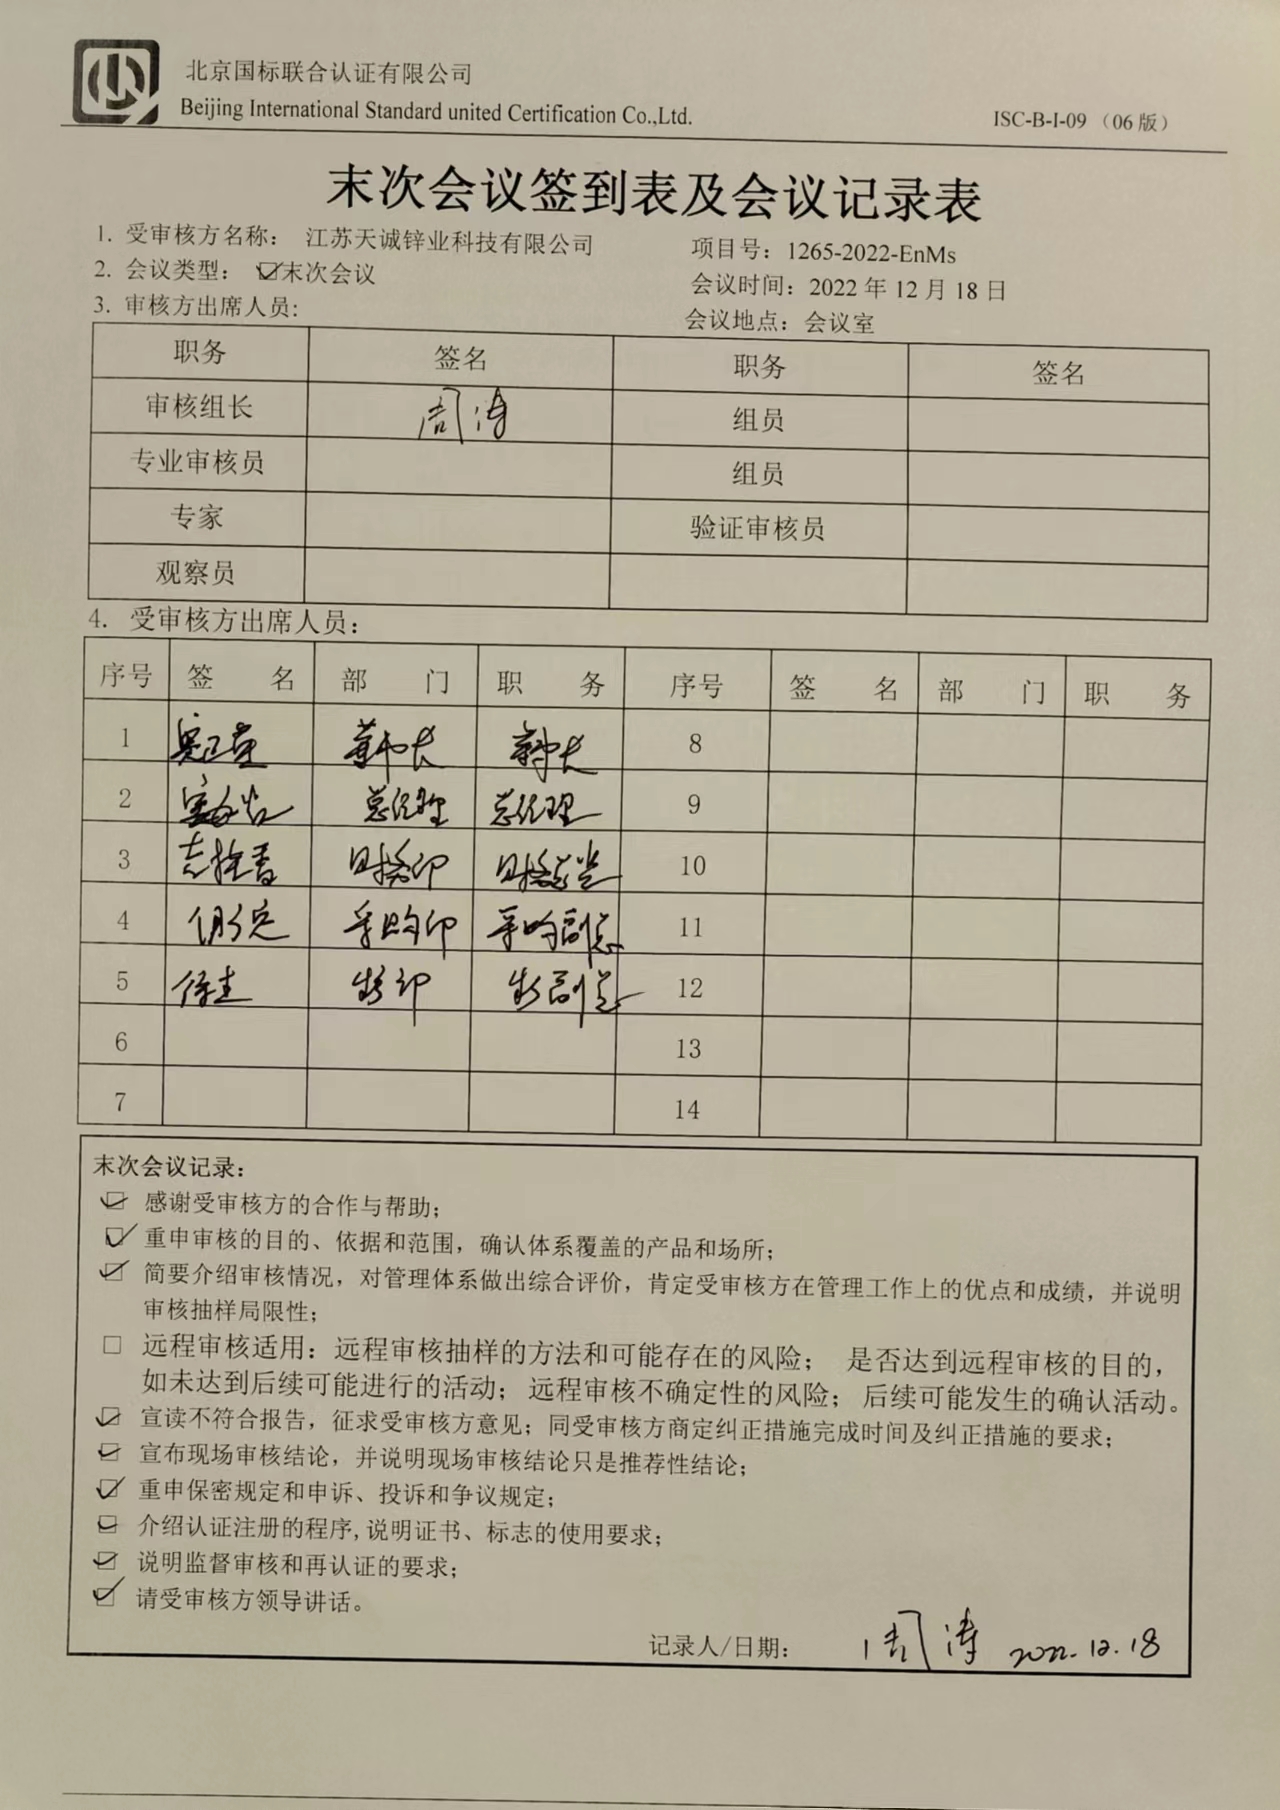 北京国标联合认证有限公司
Beijing International Standard united Certification Co.,Ltd.
ISC-B-I-09 （06版）
末次会议签到表及会议记录表
1. 受审核方名称： 江苏天诚锌业科技有限公司 项目号：1265-2022-EnMs
2. 会议类型： ☑末次会议 会议时间：2022 年 12 月 18 日
3. 审核方出席人员: 会议地点：会议室
职务 签名 职务 签名
审核组长 周涛 组员
专业审核员 组员
专家 验证审核员
观察员
4. 受审核方出席人员：
序号 签 名 部 门 职 务 序号 签 名 部 门 职 务
1 董事长 董事长 8
2 总经理 总经理 9
3 财务部 财务总监 10
4 采购部 采购副总 11
5 徐圭 生产部 生产副总 12
6 13
7 14
末次会议记录：
☑ 感谢受审核方的合作与帮助；
☑ 重申审核的目的、依据和范围，确认体系覆盖的产品和场所；
☑ 简要介绍审核情况，对管理体系做出综合评价，肯定受审核方在管理工作上的优点和成绩，并说明
审核抽样局限性；
□ 远程审核适用：远程审核抽样的方法和可能存在的风险； 是否达到远程审核的目的，
如未达到后续可能进行的活动；远程审核不确定性的风险；后续可能发生的确认活动。
☑ 宣读不符合报告，征求受审核方意见；同受审核方商定纠正措施完成时间及纠正措施的要求；
☑ 宣布现场审核结论，并说明现场审核结论只是推荐性结论；
☑ 重申保密规定和申诉、投诉和争议规定；
☑ 介绍认证注册的程序,说明证书、标志的使用要求；
☑ 说明监督审核和再认证的要求；
☑ 请受审核方领导讲话。
记录人/日期： 周涛 2022.12.18